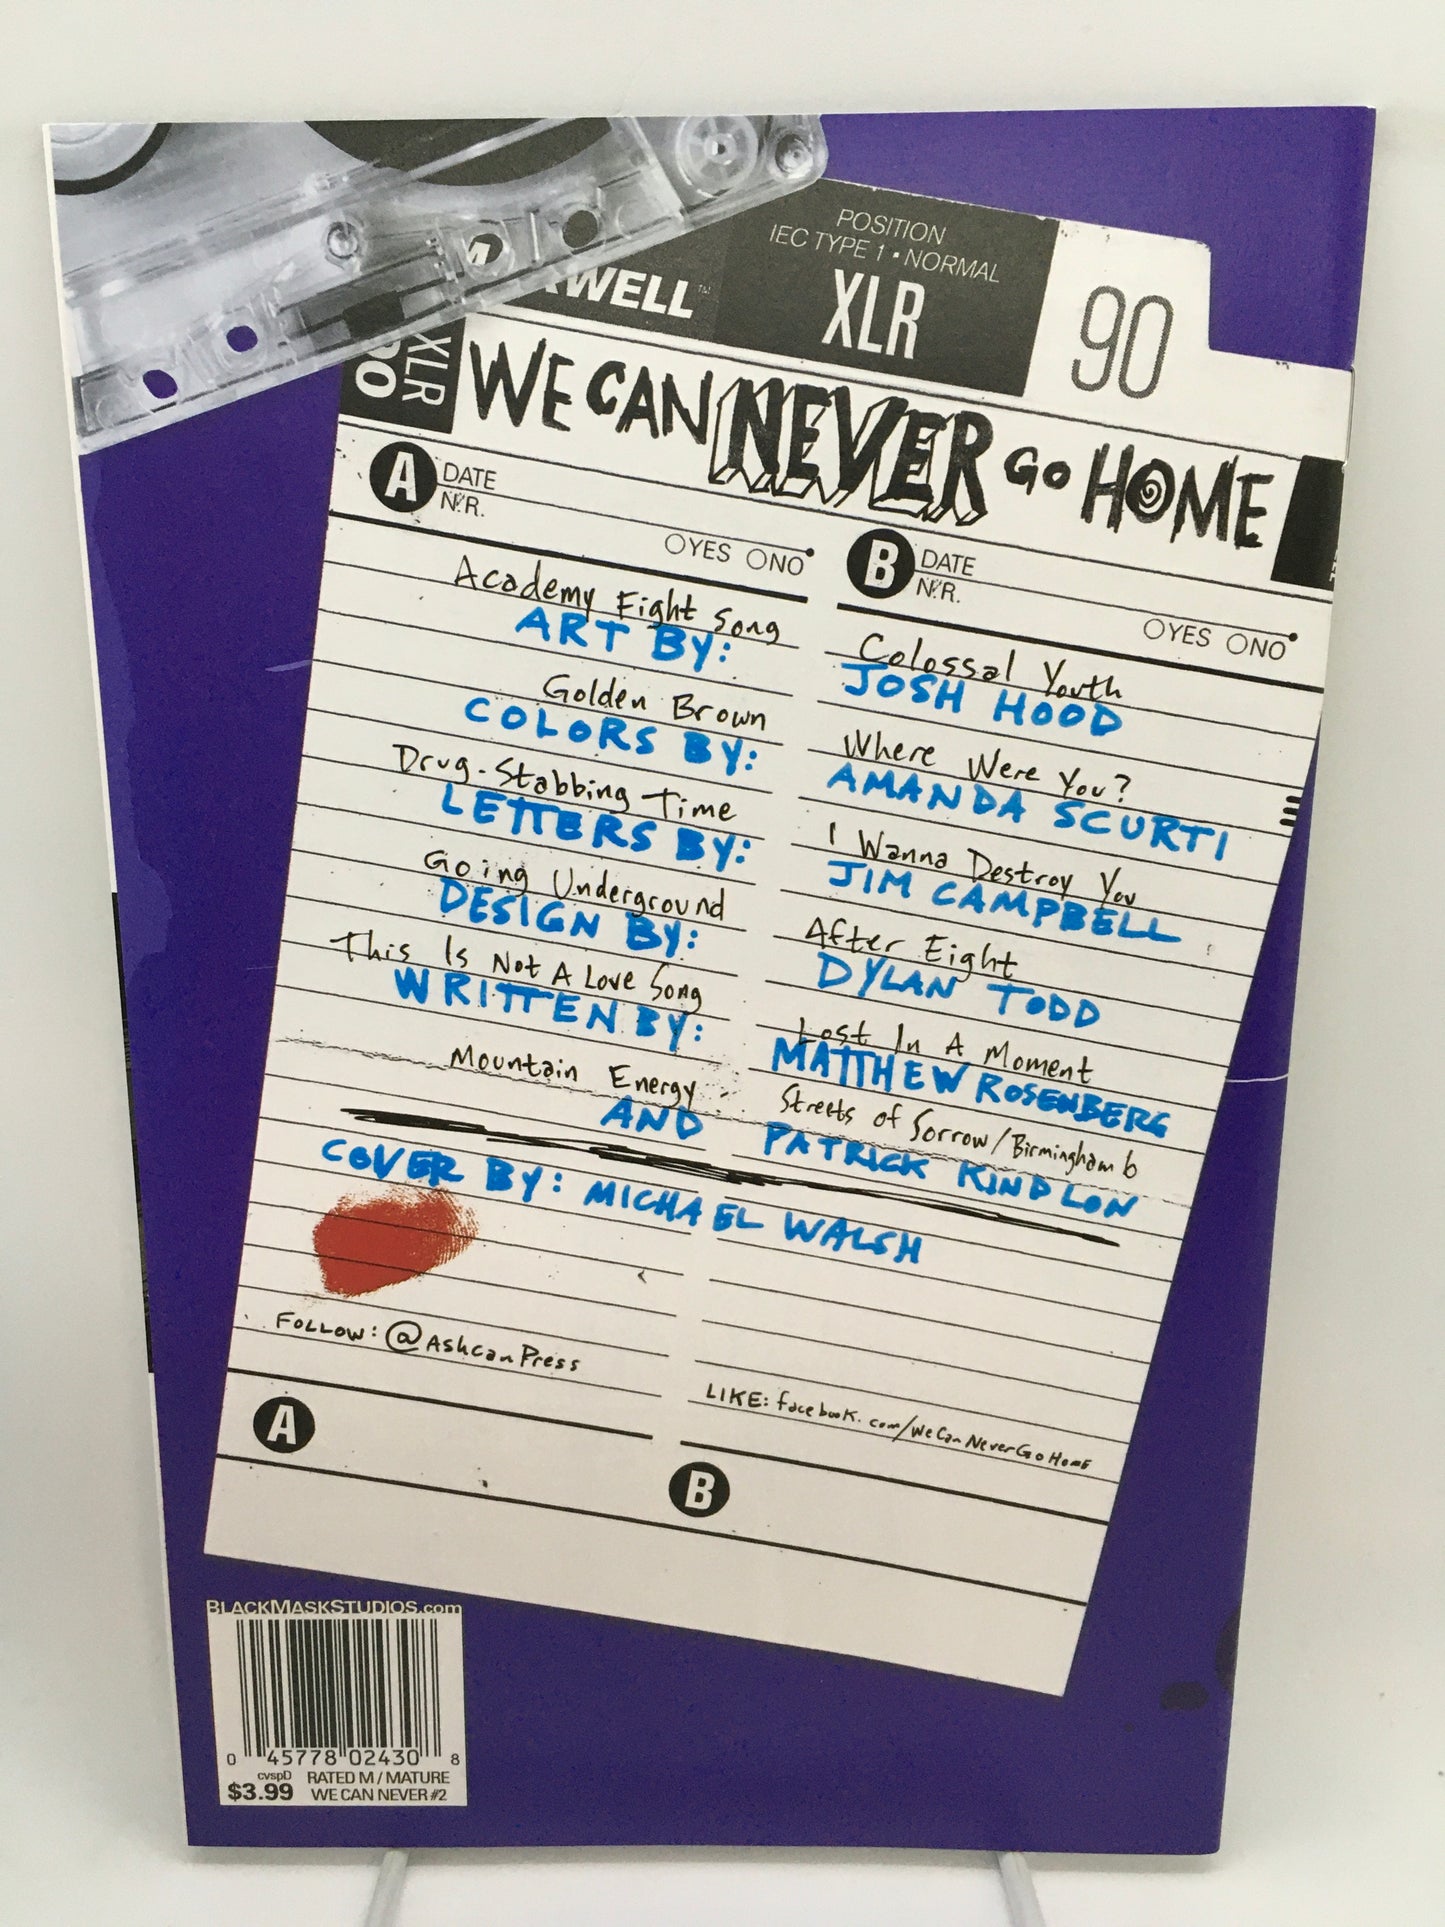 POSITION
IEC TYPE 1 • NORMAL
WELL™
XLR
90
XLR
WE CAN NEVER GO HOME
A DATE
N.R.
OYES ONO
Academy Fight Song
ART BY:
Golden Brown
COLORS BY:
Drug-Stabbing Time
LETTERS BY:
Going Underground
DESIGN BY:
This Is Not A Love Song
WRITTEN BY:
Mountain Energy
AND
B DATE
N.R.
OYES ONO
Colossal Youth
JOSH HOOD
Where Were You?
AMANDA SCURTI
I Wanna Destroy You
JIM CAMPBELL
After Eight
DYLAN TODD
Lost In A Moment
MATTHEW ROSENBERG
Streets of Sorrow/Birmingham 6
PATRICK KINDLON
COVER BY: MICHAEL WALSH
FOLLOW: @AshcanPress
LIKE: facebook.com/WeCanNeverGoHome
A
B
BLACKMASKSTUDIOS.com
0 45778 02430 8
cvspD RATED M / MATURE
$3.99 WE CAN NEVER #2